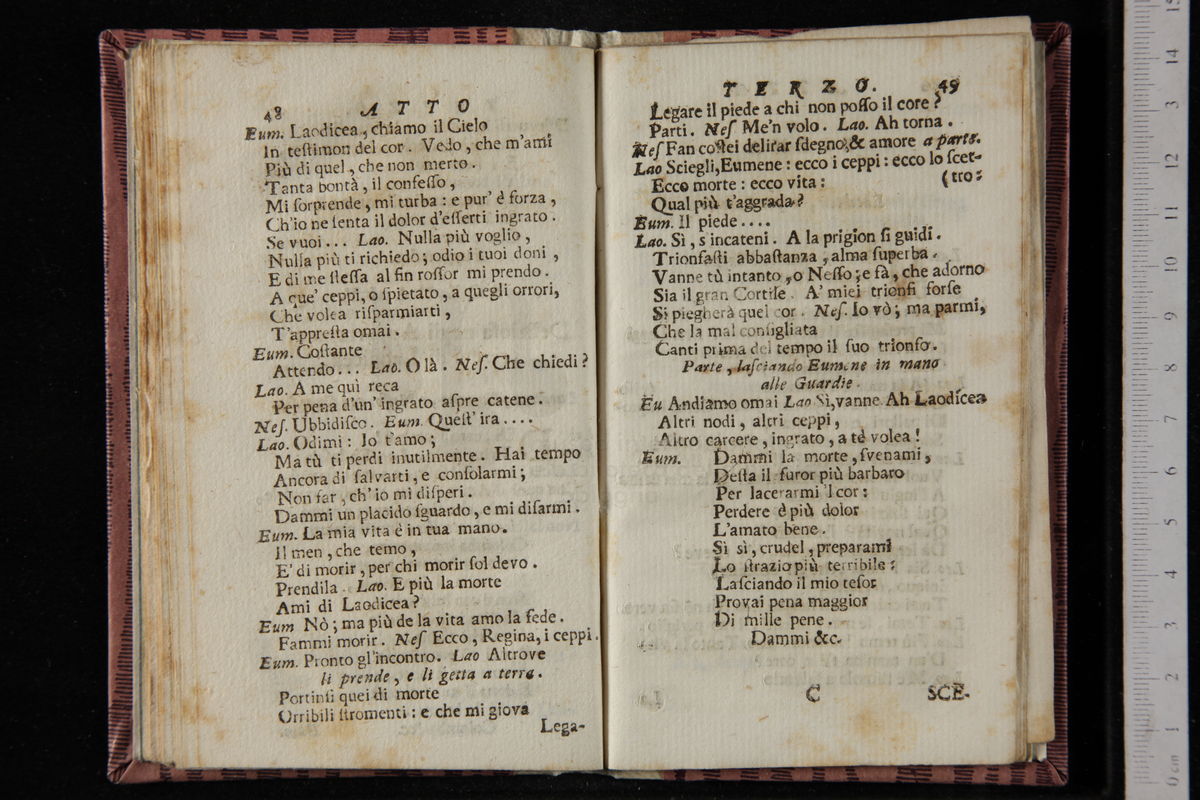 48 ATTO
Eum. Laodicea, chiamo il Cielo
In teſtimon del cor. Vedo, che m'ami
Più di quel, che non merto.
Tanta bontà, il confeſſo,
Mi ſorprende, mi turba: e pur' è forza,
Ch'io ne ſenta il dolor d'eſſerti ingrato.
Se vuoi... Lao. Nulla più voglio,
Nulla più ti richiedo; odio i tuoi doni,
E di me ſteſſa al fin roſſor mi prendo.
A que' ceppi, o ſpietato, a quegli orrori,
Che volea riſparmiarti,
T'appreſta omai.
Eum. Coſtante
Attendo... Lao. O là. Neſ. Che chiedi?
Lao. A me quì reca
Per pena d'un' ingrato aſpre catene.
Neſ. Ubbidiſco. Eum. Queſt' ira....
Lao. Odimi: Io t'amo;
Ma tù ti perdi inutilmente. Hai tempo
Ancora di ſalvarti, e conſolarmi;
Non far, ch'io mi diſperi.
Dammi un placido ſguardo, e mi diſarmi.
Eum. La mia vita è in tua mano.
Il men, che temo,
E' di morir, per chi morir ſol devo.
Prendila. Lao. E più la morte
Ami di Laodicea?
Eum Nò; ma più de la vita amo la fede.
Fammi morir. Neſ Ecco, Regina, i ceppi.
Eum. Pronto gl'incontro. Lao Altrove
li prende, e li getta a terra.
Portinſi quei di morte
Orribili ſtromenti: e che mi giova
Lega-
TERZO. 49
Legare il piede a chi non poſſo il core?
Parti. Neſ Me'n volo. Lao. Ah torna.
Neſ Fan coſtei delirar ſdegno, & amore a parte.
Lao Sciegli, Eumene: ecco i ceppi: ecco lo ſcet-
Ecco morte: ecco vita: (tro:
Qual più t'aggrada?
Eum. Il piede....
Lao. Sì, s'incateni. A la prigion ſi guidi.
Trionfaſti abbaſtanza, alma ſuperba.
Vanne tù intanto, o Neſſo; e fà, che adorno
Sia il gran Cortile. A' miei trionfi forſe
Si piegherà quel cor. Neſ. Io vò; ma parmi,
Che la mal conſigliata
Canti prima del tempo il ſuo trionfo.
Parte, laſciando Eumene in mano
alle Guardie.
Eu Andiamo omai Lao Sì, vanne. Ah Laodicea
Altri nodi, altri ceppi,
Altro carcere, ingrato, a te volea!
Eum. Dammi la morte, ſvenami,
Deſta il furor più barbaro
Per lacerarmi 'l cor:
Perdere è più dolor
L'amato bene.
Sì sì, crudel, preparami
Lo ſtrazio più terribile:
Laſciando il mio teſor
Provai pena maggior
Di mille pene.
Dammi &c.
C SCE-